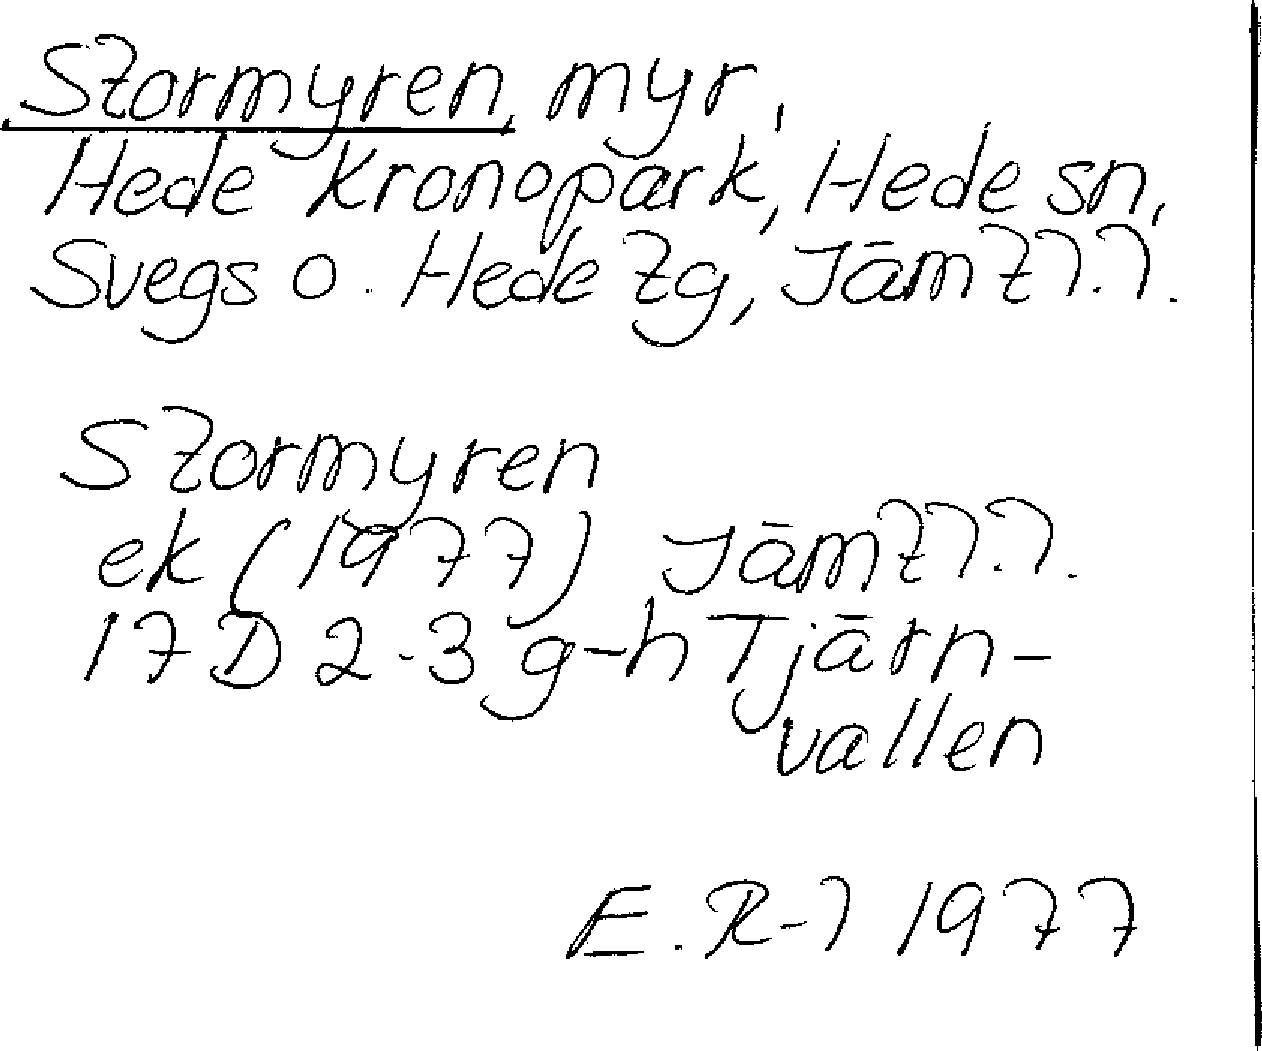 Stormyren, myr,
Hede kronopark, Hede sn,
Svegs o. Hede tg, Jämtl.l.
Stormyren
ek (1977) Jämtl.l.
17D 2-3 g-h Tjärn-
vallen
E. R-l 1977